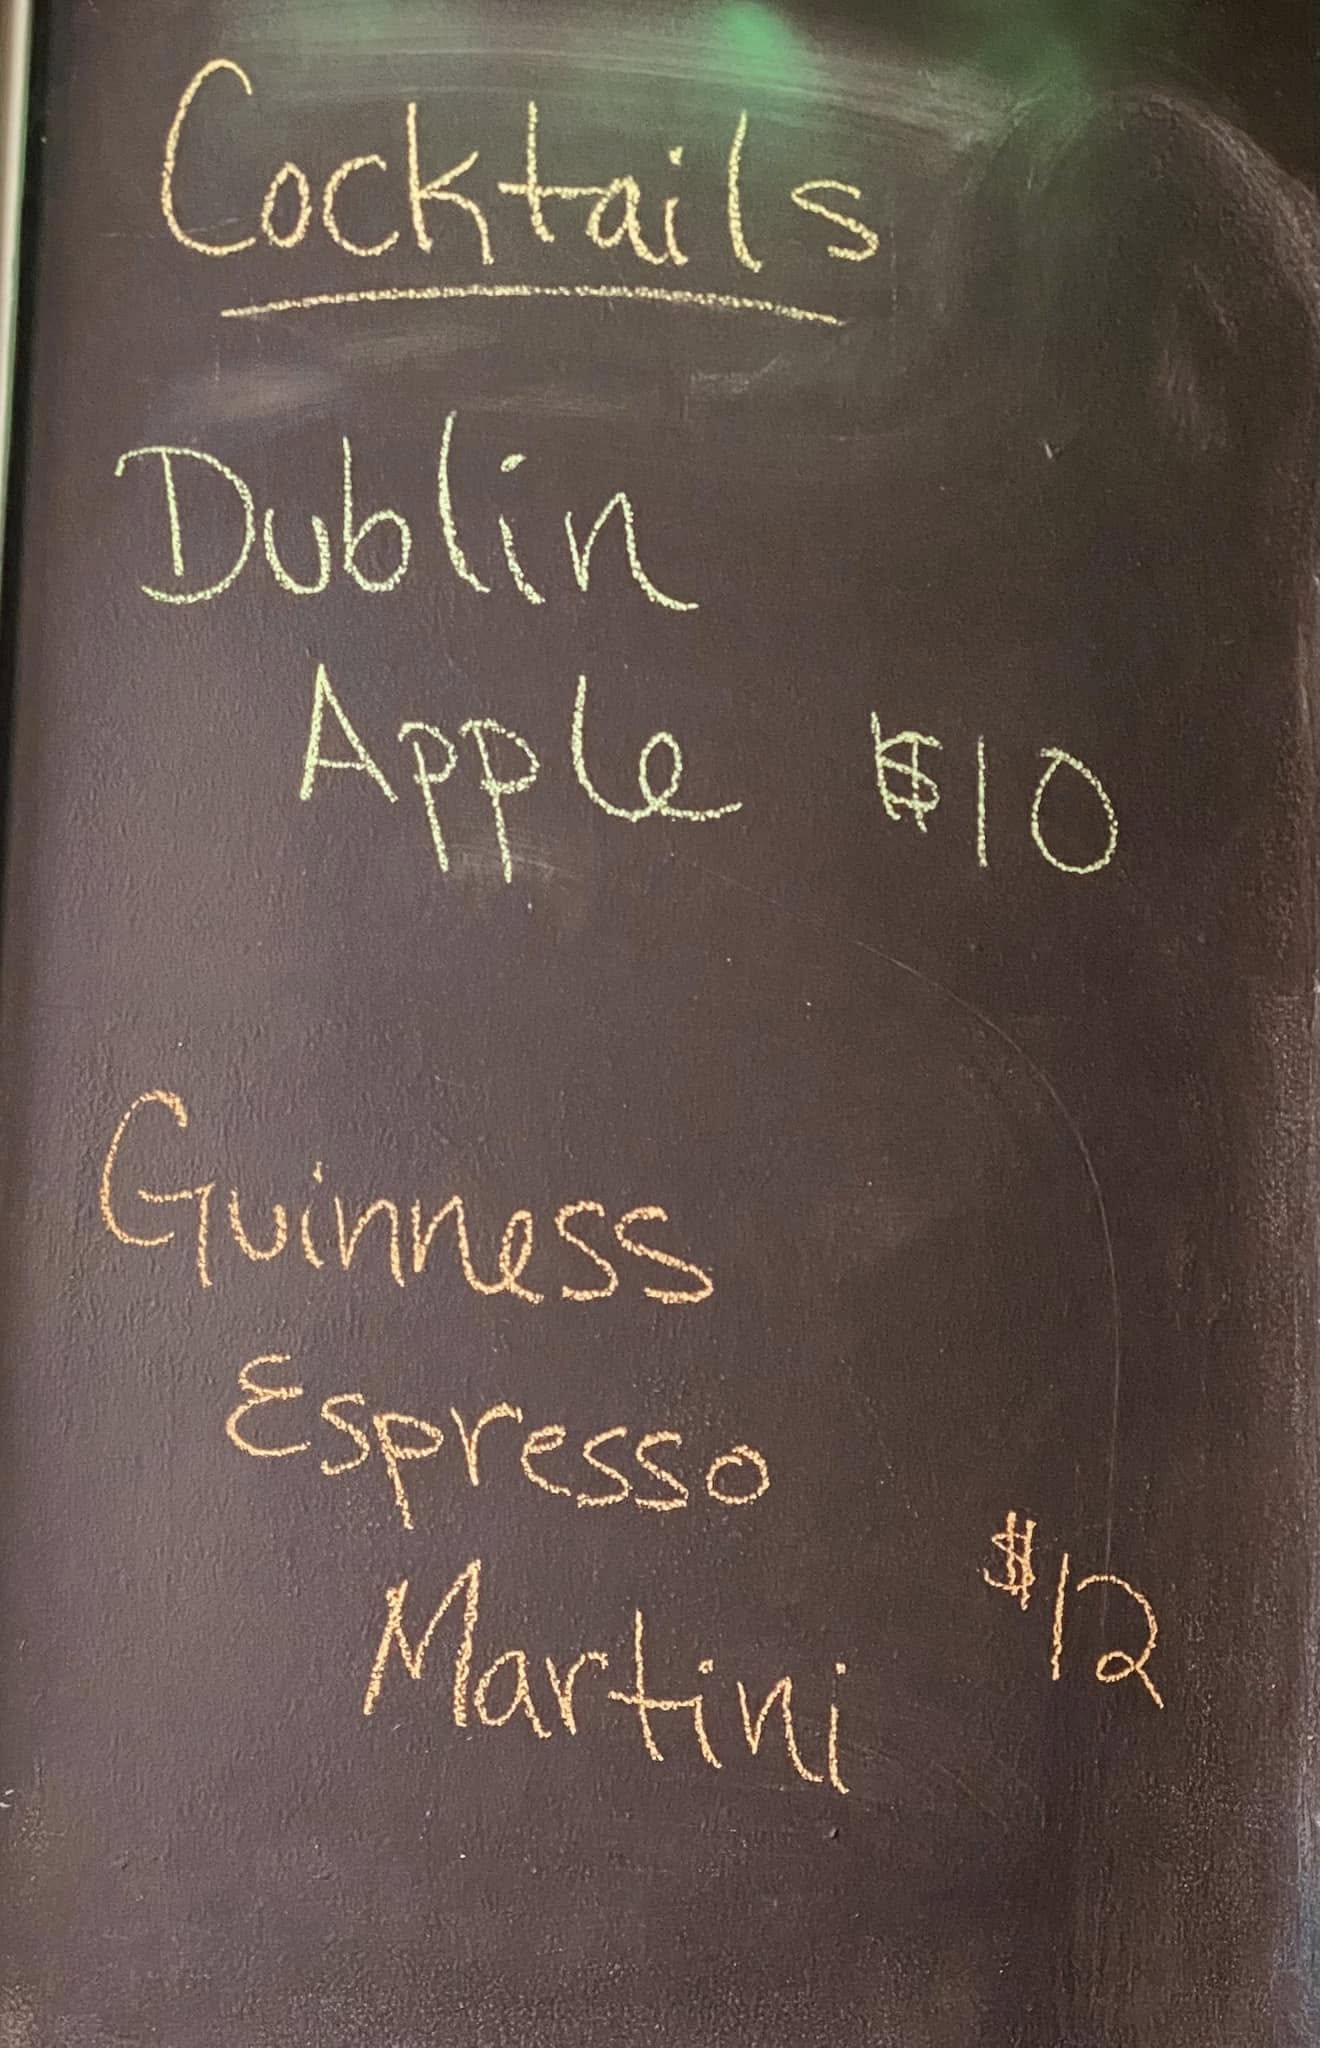 Cocktails
Dublin
Apple $10
Guinness
Espresso
Martini $12